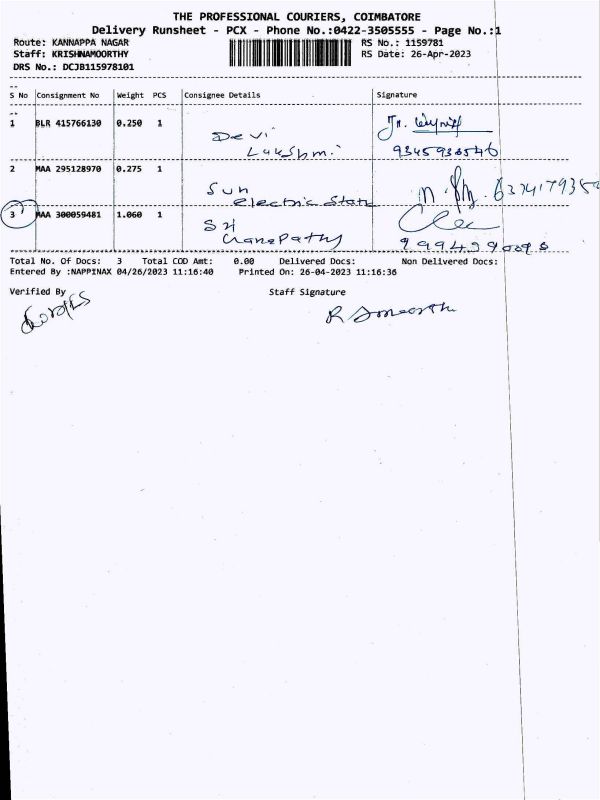 THE PROFESSIONAL COURIERS, COIMBATORE
Delivery Runsheet - PCX - Phone No.:0422-3505555 - Page No.:1
Route: KANNAPPA NAGAR RS No.: 1159781
Staff: KRISHNAMOORTHY RS Date: 26-Apr-2023
DRS No.: DCJB115978101
S No Consignment No Weight PCS Consignee Details Signature
1 BLR 415766130 0.250 1
Devi
Lakshmi
2 MAA 295128970 0.275 1
Sun
electric State
3 MAA 300059481 1.060 1
Sri
Ganapathy
Total No. Of Docs: 3 Total COD Amt: 0.00 Delivered Docs: Non Delivered Docs:
Entered By :NAPPINAX 04/26/2023 11:16:40 Printed On: 26-04-2023 11:16:36
Verified By Staff Signature